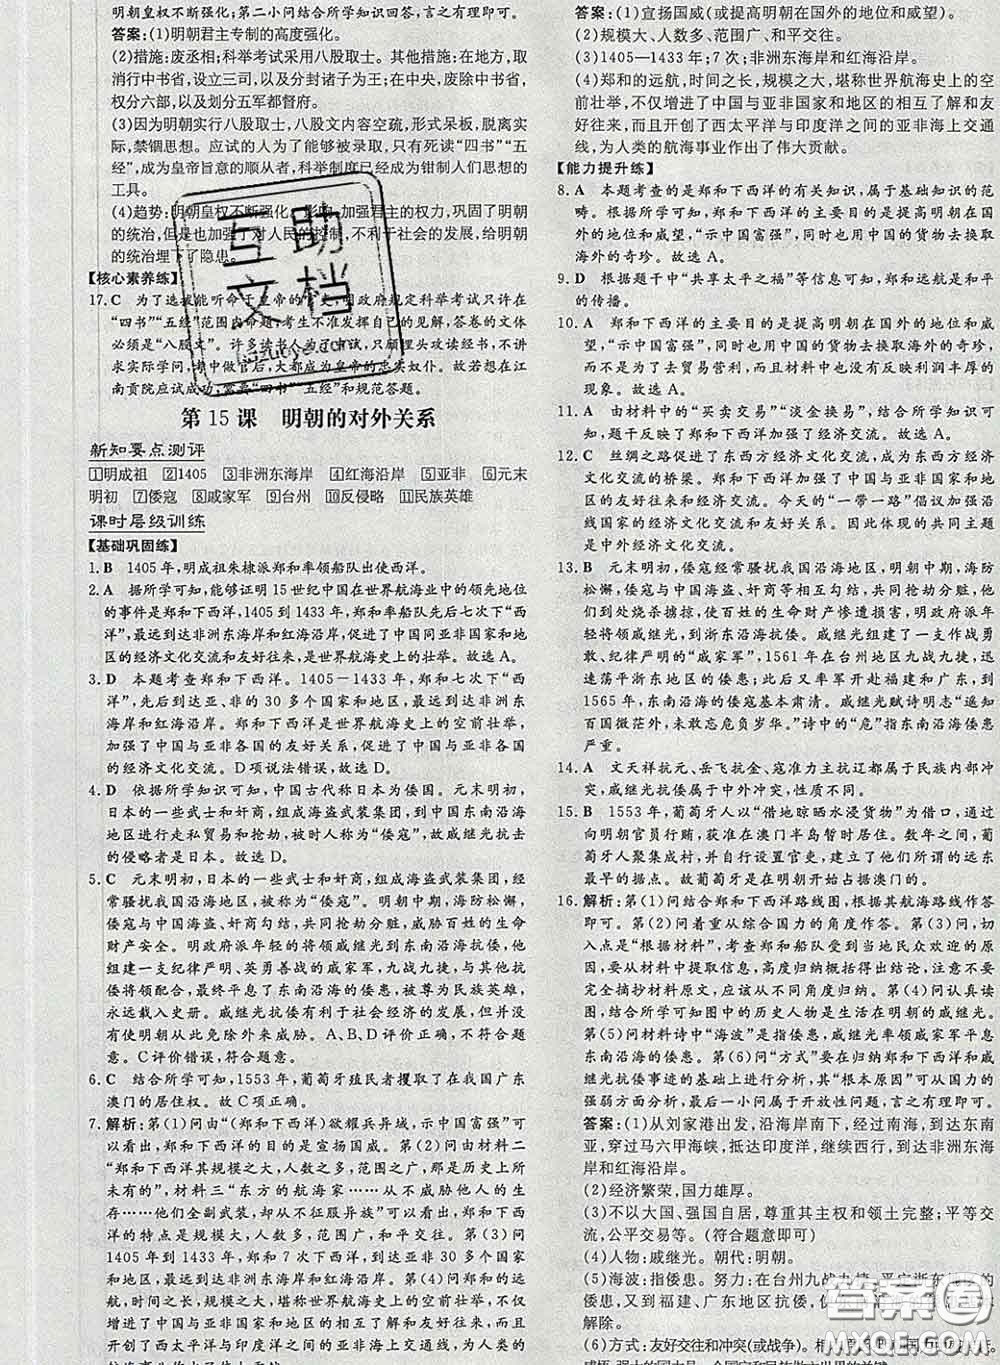 明朝皇权不断强化；第二小问结合所学知识回答，言之有理即可。
答案:(1)明朝君主专制的高度强化。
(2)措施：废丞相；科举考试采用八股文取士。影响：在地方，取
消行中书省，设立三司，以及分封诸子为王；在中央，废除中书省，
权分六部，以及划分五军都督府。
(3)因为明朝实行八股取士，八股文内容空疏，形式呆板，脱离实
际，禁锢思想。应试的人为了能够被录取，只有研读“四书”“五
经”，成为皇帝旨意的顺从者，科举制度已经成为钳制人们思想的
工具。
(4)趋势：明朝皇权不断强化。影响：加强君主的权力，巩固了明朝
的统治，但加强了对人民的控制，不利于社会的发展，给明朝
的统治埋下了隐患。
【核心素养练】
17.C 为了选拔能听命于皇帝的官吏，明政府规定科举考试只许在
“四书”“五经”范围内命题，考生不准发挥自己的见解，答卷的文体
必须是“八股文”。许多读书人为了应付考试，只顾埋头攻读经书，不
讲求实际学问，考中做官后，大都成为皇帝的忠实奴仆。故若想在江
南贡院应试成功，需要“四书”“五经”和规范答题。
第15课 明朝的对外关系
新知要点测评
①明成祖 ②1405 ③非洲东海岸 ④红海沿岸 ⑤亚非 ⑥元末
明初 ⑦倭寇 ⑧戚家军 ⑨台州 ⑩反侵略 ⑪民族英雄
课时层级训练
【基础巩固练】
1.B 1405年，明成祖朱棣派郑和率领船队出使西洋。
2.A 据所学可知，能够证明15世纪中国在世界航海业中的领先地位
的事件是郑和下西洋，1405到1433年，郑和率船队先后七次下“西
洋”，最远到达非洲东海岸和红海沿岸，促进了中国同亚非国家和地
区的经济文化交流和友好往来，是世界航海史上的壮举。故选A。
3.D 本题考查郑和下西洋。1405－1433年，郑和七次下“西
洋”，先后到达亚、非的30多个国家和地区，最远到达非洲东
海岸和红海沿岸。郑和下西洋是世界航海史上的空前壮举，
加强了中国与亚非各国的友好关系，促进了中国与亚非各国
的经济文化交流。D项说法错误，故选D。
4.D 依据所学知识可知，中国古代称日本为倭国。元末明初，
日本的一些武士和奸商，组成海盗武装集团，到中国东南沿海
地区进行走私贸易和抢劫，被时人称为“倭寇”，故戚继光抗击
的侵略者是日本。故选D。
5.C 元末明初，日本的一些武士和奸商，组成海盗武装集团，经
常骚扰我国沿海地区，史称“倭寇”。明朝中期，海防松懈，
倭寇与中国海盗、奸商勾结，共同抢劫分赃，威胁百姓的生命
财产安全。明政府派年轻的戚继光到东南沿海抗击倭寇，他
组建一支纪律严明、英勇善战的戚家军，九战九捷，与其他抗
倭将领配合，最终平息了东南沿海的倭患，被尊为民族英雄，
永远载入史册。戚继光抗倭有利于社会经济的发展，但并没
有使明朝从此免除外来威胁。A、B、D评价正确，不符合题
意。C评价错误，符合题意。
6.C 结合所学可知，1553年，葡萄牙殖民者攫取了在我国广东
澳门的居住权。故C项正确。
7.解析：第(1)问由“(郑和下西洋)欲耀兵异域，示中国富强”可
以看出，郑和下西洋的目的是宣扬国威。第(2)问由材料二
“郑和下西洋其规模之大，人数之多，范围之广，是历史上所
未有的”，材料三“东方的航海家……从不威胁他人的生
存……他们全副武装，却从不征服异族”可以看出，郑和下西
洋的特点是规模大，人数多，范围广，和平交往。第(3)问
1405年到1433年，郑和7次下西洋，先后到达亚非30多个
国家和地区，最远到达非洲东海岸和红海沿岸，第(4)问郑和的远航，
时间之长，规模之大，堪称世界航海史上的空前壮举，
不仅增进了中国与亚非国家和地区的相互了解和友好往来，而且
开创了西太平洋与印度洋之间的亚非海上交通线，为人类的
答案:(1)宣扬国威(或提高明朝在国外的地位和威望)。
(2)规模大、人数多、范围广、和平交往。
(3)1405—1433年；7次；非洲东海岸和红海沿岸。
(4)郑和的远航，时间之长，规模之大，堪称世界航海史上的空
前壮举，不仅增进了中国与亚非国家和地区的相互了解和友
好往来，而且开创了西太平洋与印度洋之间的亚非海上交通
线，为人类的航海事业作出了伟大贡献。
【能力提升练】
8.A 本题考查的是郑和下西洋的有关知识，属于基础知识的范
畴。根据所学可知，郑和下西洋的主要目的是提高明朝在国
外的地位和威望，“示中国富强”，同时也用中国的货物去换取
海外的奇珍。故选A。
9.D 根据题干中“共享太平之福”等信息可知，郑和远航是和平
的传播。
10.A 郑和下西洋的主要目的是提高明朝在国外的地位和威
望，“示中国富强”，同时也用中国的货物去换取海外的奇珍，
而不是为了去贸易营利，而且材料中也没有反映利润丰厚的
现象。故选A。
11.A 由材料中的“买卖交易”“淡金换易”，可知选A。
12.C 丝绸之路促进了东西方经济文化的交流，成为东西方经济
文化交流的桥梁。郑和下西洋，增进了中国与亚非国家和地区
的友好往来和经济文化交流。今天的“一带一路”倡议加强沿
线国家的经济文化交流和友好往来。因此体现的共同主题
是中外经济文化交流。
13.B 元末明初，倭寇经常骚扰我国沿海地区，明朝中期，海防
松懈，倭寇与中国海盗、奸商等相互勾结，共同抢劫分赃，他
们到处烧杀掳掠，使百姓的生命财产惨遭损害。明政府派年
轻将领戚继光，到浙东沿海抗倭。戚继光组建了一支作战勇
敢、纪律严明的“戚家军”，1561年在台州地区九战九捷，迅
速荡平浙东地区的倭患；此后又率军开赴福建和广东，到
1565年，东南沿海的倭寇基本肃清。戚继光赋诗明志“遥知
百国微茫外，未敢忘危负岁华。”诗中的“危”指东南沿海倭患
严重。
14.A 文天祥抗元、岳飞抗金、寇准力主抗辽都属于民族内部冲
突，戚继光抗倭属于中外冲突，选项性质不同。
15.B 1553年，葡萄牙人以“借地晾晒水浸货物”为借口，通过
向明朝官员行贿，获准在澳门半岛暂时居住。数年之间，葡
萄牙人聚集成村，并自行设置官吏，使澳门成为他们所谓的远东
最早的据点。故葡萄牙在明朝开始占据澳门的。
16.解析：第(1)问结合郑和下西洋路线图，根据其航海路线作答
即可。第(2)问着重从综合国力的角度作答。第(3)问，切
入点是“根据材料”，考查郑和船队受到当地民众欢迎的原
因，要从材料中提取信息，高度归纳概括后得出结论，注意不要
完全摘抄材料原文，尽可能从不同角度归纳。第(4)问认真读
图，结合所学可知图中的历史人物是生活在明朝的戚继光。
第(5)问材料诗中“海波”是指倭患，戚继光率领戚家军平息
东南沿海的倭患。第(6)问“方式”要在归纳郑和下西洋和戚
继光抗倭事迹的基础上进行分析，其“根本原因”可从国力的
强弱方面分析，最后一小问属于开放性问题，言之有理即可。
答案:(1)从刘家港出发，沿海岸南下，经过南海，到达东南
亚，穿过马六甲海峡，抵达印度洋，继续西行，到达非洲东海
岸和红海沿岸。
(2)经济繁荣，国力雄厚。
(3)不以大国、强国自居，尊重其主权和领土完整；平等交
流，公平交易等。(符合题意即可)
(4)人物：戚继光。朝代：明朝。
(5)海波：指倭患。努力：在台州九战九捷，平定浙东
患，又到福建、广东地区抗倭，
解除。
(6)方式：友好交往和冲突(或战争)。
互助文档
答案圈
MXQE.COM